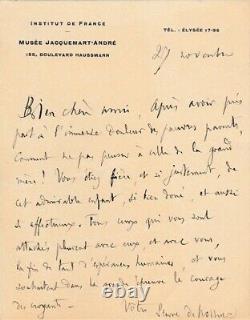 INSTITUT DE FRANCE
MUSÉE JACQUEMART-ANDRÉ
158, BOULEVARD HAUSSMANN
TÉL. : ÉLYSÉE 17-96
27 novembre
Bien chère amie, Après avoir pris
part à l'immense douleur de pauvres parents,
comment ne pas penser à celle de la grand
mère ! Vous étiez fière, et si justement, de
cet admirable enfant, si bien doué, et aussi
si affectueux. Tous ceux qui vous sont
attachés pleurent avec eux et avec vous,
la fin de tant d'espérances humaines et vous
souhaitent dans la rude épreuve le courage
des croyants.
Votre Pierre de Nolhac